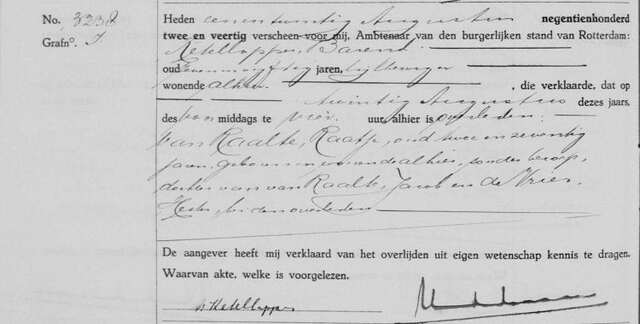 No. 3232
Heden eenentwintig Augustus negentienhonderd
Grafn°. I
twee en veertig verscheen voor mij, Ambtenaar van den burgerlijken stand van Rotterdam:
Ketellapper, Barend
oud jaren,
wonende alhier , die verklaarde, dat op
twintig Augustus dezes jaars,
des voor middags te vier uur, alhier is overleden:
van Raalte, Raatje, oud twee en zeventig
jaren, geboren en wonende alhier, zonder beroep,
dochter van van Raalte, Jacob en de Vries,
Hester, beiden overleden
De aangever heeft mij verklaard van het overlijden uit eigen wetenschap kennis te dragen.
Waarvan akte, welke is voorgelezen.
B Ketellapper